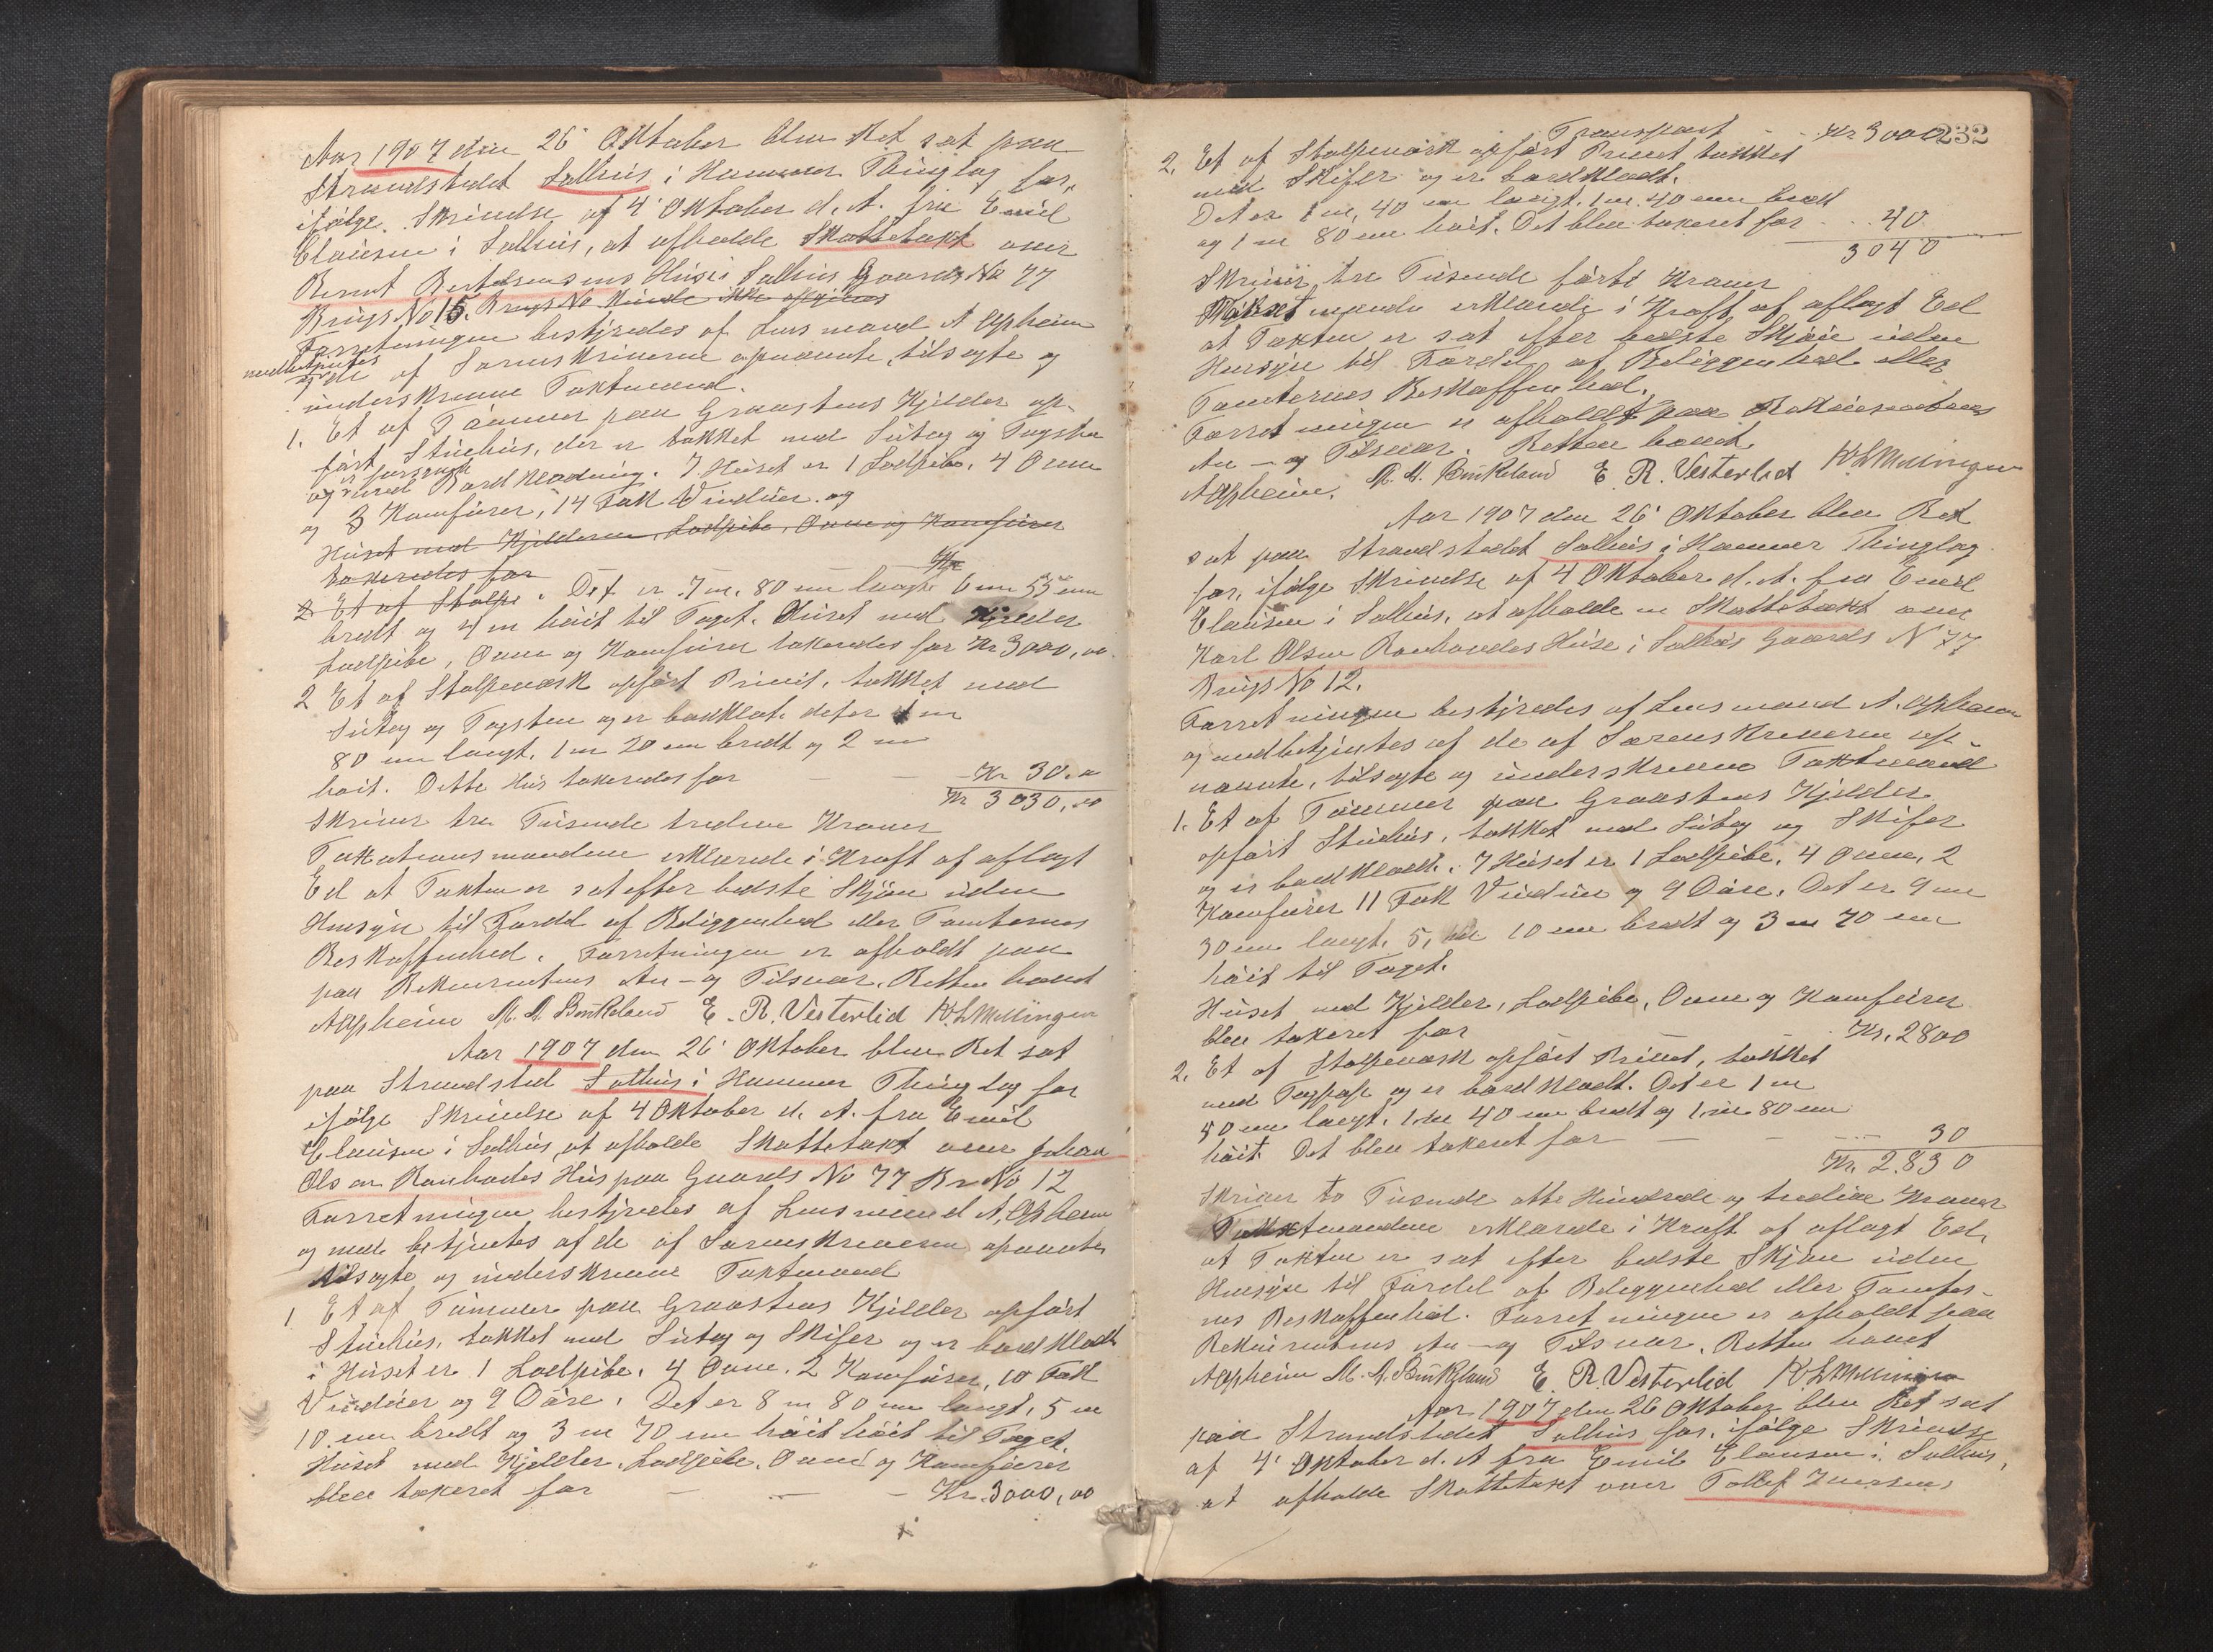 Aar 1907 den 26' Oktober blev Ret sat paa
Strandstedet Salhus i Hammer Thinglag for,
ifølge Skrivelse af 4' Oktober d. A. fra Emil
Clausen i Salhus, at afholde Skattetaxt over
Bernt Bertelsens Huse i Salhus Gaards No 77
Brugs No 15. Brugs No kunde ikke opgives
Forretningen bestyredes af Lensmand A Opheim
medbetjentes
og de af Sorenskriveren opnævnte, tilsagte og
underskrevne Taxtmænd.
1. Et af Tømmer paa Graastens Kjelder op-
ført Stuehus, der er tækket med Sutag og Tagsten
og er forsynet med Bordklædning. I Huset er 1 Lodpibe, 4 Ovne
og 3 Komfurer, 14 Fak Vinduer og
Huset med Kjelderen, Lodpibe, Ovne og Komfurer
taxeredes for Kr
2 Et af Stolpe. Det er 7 m. 80 cm langt 6 m 55 cm
bredt og 4 m høit til Taget. Huset med Kjelder
Lodpibe, Ovne og Komfurer taxeredes for Kr 3000,00.
2 Et af Stolpeværk opført Privet, tækket med
Sutag og Tagsten og er bordklæt. det er 1 m
80 cm langt, 1 m 20 cm bredt og 2 m
høit. Dette Hus taxeredes for - - - Kr 30.00
Kr 3030,00
Skriver tre Tusende tredive Kroner
Taxationsmændene erklærede i Kraft af aflagt
Ed at Taxten er sat efter bedste Skjøn uden
Hensyn til Fordel af Beliggenhed eller Tomternes
Beskaffenhed. Forretningen er afholdt paa
paa Rekvirentens An- og Tilsvar. Retten hævet
AOpheim M. A. Birkeland E. R. Vesterlid
Aar 1907 den 26' Oktober blev Ret sat
paa Strandsted Salhus i Hammer Thinglag for
ifølge Skrivelse af 4 Oktober d. A. fra Emil
Clausen i Salhus, at afholde Skattetaxt over Johan
Olsen Hus paa Gaards No 77 Br No 12
Forretningen bestyredes af Lensmand A. Opheim
og med betjentes af de af Sorenskriveren opnævnte
tilsagte og underskrevne Taxtmænd
1 Et af Tømmer paa Graastens Kjelder opført
Stuehus, tækket med Sutag og Skifer og er bordklædt
i Huset er 1 Lodpibe, 4 Ovne. 2 Komfurer, 10 Fak
Vinduer og 9 Døre. Det er 8 m 80 cm langt, 5 m
10 cm bredt og 3 m 70 cm høit høit til Taget
Huset med Kjelder, Lodpibe, Ovne og Komfurer
blev taxeret for - - - Kr. 3000,00
232
Transport - - Kr 3000
2. Et af Stolpeværk opført Privet tækket
med Skifer og er bordklædt.
Det er 1 m, 40 cm langt, 1 m. 40 cm bredt
og 1 m 80 cm høit. Det blev taxeret for - - 40
3040
Skriver tre Tusende førti Kroner
Taxtmændene erklærede i Kraft af aflagt Ed
at Taxten er sat efter bedste Skjøn uden
Hensyn til Fordel af Beliggenhed eller
Tomternes Beskaffenhed.
Forretningen er afholdt paa Rekvirentens
An- og Tilsvar. Retten hævet.
AOpheim. M. A. Birkeland E. R. Vesterlid
Aar 1907 den 26' Oktober blev Ret
sat paa Strandstedet Salhus i Hammer Thinglag
for, ifølge Skrivelse af 4 Oktober d. A. fra Emil
Clausen i Salhus, at afholde en Skattetaxt over
Karl Olsen Huse i Salhus Gaards N 77
Brugs No 12.
Forretningen bestyredes af Lensmand A. Opheim
og medbetjentes af de af Sorenskriveren op-
nævnte, tilsagte og underskrevne Taxtmænd
1. Et af Tømmer paa Graastens Kjelder
opført Stuehus, tækket med Sutag og Skifer
og er bordklædt. I Huset er 1 Lodpibe, 4 Ovne, 2
Komfurer 11 Fak Vinduer og 9 Døre. Det er 9 m
30 cm langt, 5, m 10 cm bredt og 3 m 70 cm
høit til Taget.
Huset med Kjelder, Lodpibe, Ovne og Komfurer
blev taxeret for - - - Kr. 2800
2. Et af Stolpeværk opført Privet, tækket
med Tagpap og er bordklædt. Det er 1 m
50 cm langt, 1 m 40 cm bredt og 1 m 80 cm
høit. Det blev taxeret for - - - 30
Kr. 2.830
Skriver to Tusende otte Hundrede og tredive Kroner
Taxtmændene erklærede i Kraft af aflagt Ed,
at Taxten er sat efter bedste Skjøn uden
Hensyn til Fordel af Beliggenhed eller Tomter-
nes Beskaffenhed. Forretningen er afholdt paa
Rekvirentens An- og Tilsvar. Retten hævet
AOpheim M. A. Birkeland E. R. Vesterlid
Aar 1907 den 26 Oktober blev Ret sat
paa Strandstedet Salhus for, ifølge Skrivelse
af 4' Oktober d. A fra Emil Clausen i Salhus,
at afholde Skattetaxt over Tollef Iversens